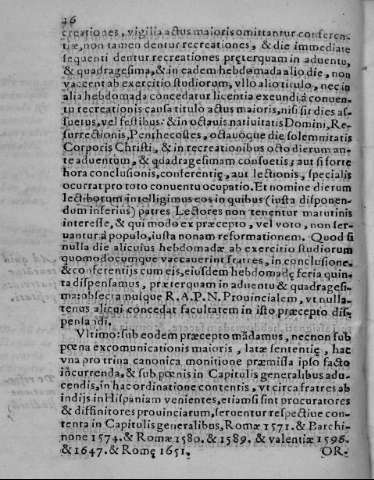 26
creationes, vigilia actus maioris omittantur conferentiæ, non tamen dentur recreationes, & die immediate
sequenti dentur recreationes pręterquam in aduentu,
& quadragesima, & in eadem hebdomada alio die, non
vacent ab exercitio studiorum, vllo alio titulo, nec in
alia hebdomada concedatur licentia exeundi à conuentu recreationis causa titulo actus maioris, nisi sit dies assuetus, vel festibus: & in octauis natiuitatis Domini, Resurrectionis, Penthecostes, octauoque die solemnitatis
Corporis Christi, & in recreationibus octo dierum ante aduentum, & quadragesimam consuetis; aut si forte
hora conclusionis, conferentię, aut lectionis, specialis
ocurrat pro toto conuentu ocupatio. Et nomine dierum
lectiborum intelligimus eos in quibus (iusta disponendum inferius) patres Lectores non tenentur matutinis
interesse, & qui modo ex præcepto, vel voto, non seruantur à populo, iusta nonam reformationem. Quod si
nulla die alicuius hebdomadæ ab exercitio studiorum
quomodocumque vaccauerint fratres, in conclusione,
& conferentijs cum eis, eiusdem hebdomadę feria quinta dispensamus, præterquam in aduentu & quadragesima: obsecta nusque R. A. P. N. Prouincialem, vt nullatenus alicui concedat facultatem in isto præcepto dispensandi.
Vltimo: sub eodem præcepto mãdamus, necnon sub
pœna excomunicationis maioris, latæ sententię, hac
vna pro trina canonica monitione præmissa ipso facto
incurrenda, & sub pœnis in Capitulis generalibus aducendis, in hac ordinatione contentis, vt circa fratres ab
indijs in Hispaniam venientes, etiamsi sint procuratores
& diffinitores prouinciarum, seruentur respectiue contenta in Capitulis generalibus, Romæ 1571. & Barchinone 1574. & Romæ 1580. & 1589. & valentiæ 1596.
& 1647. & Romę 1651.
OR-